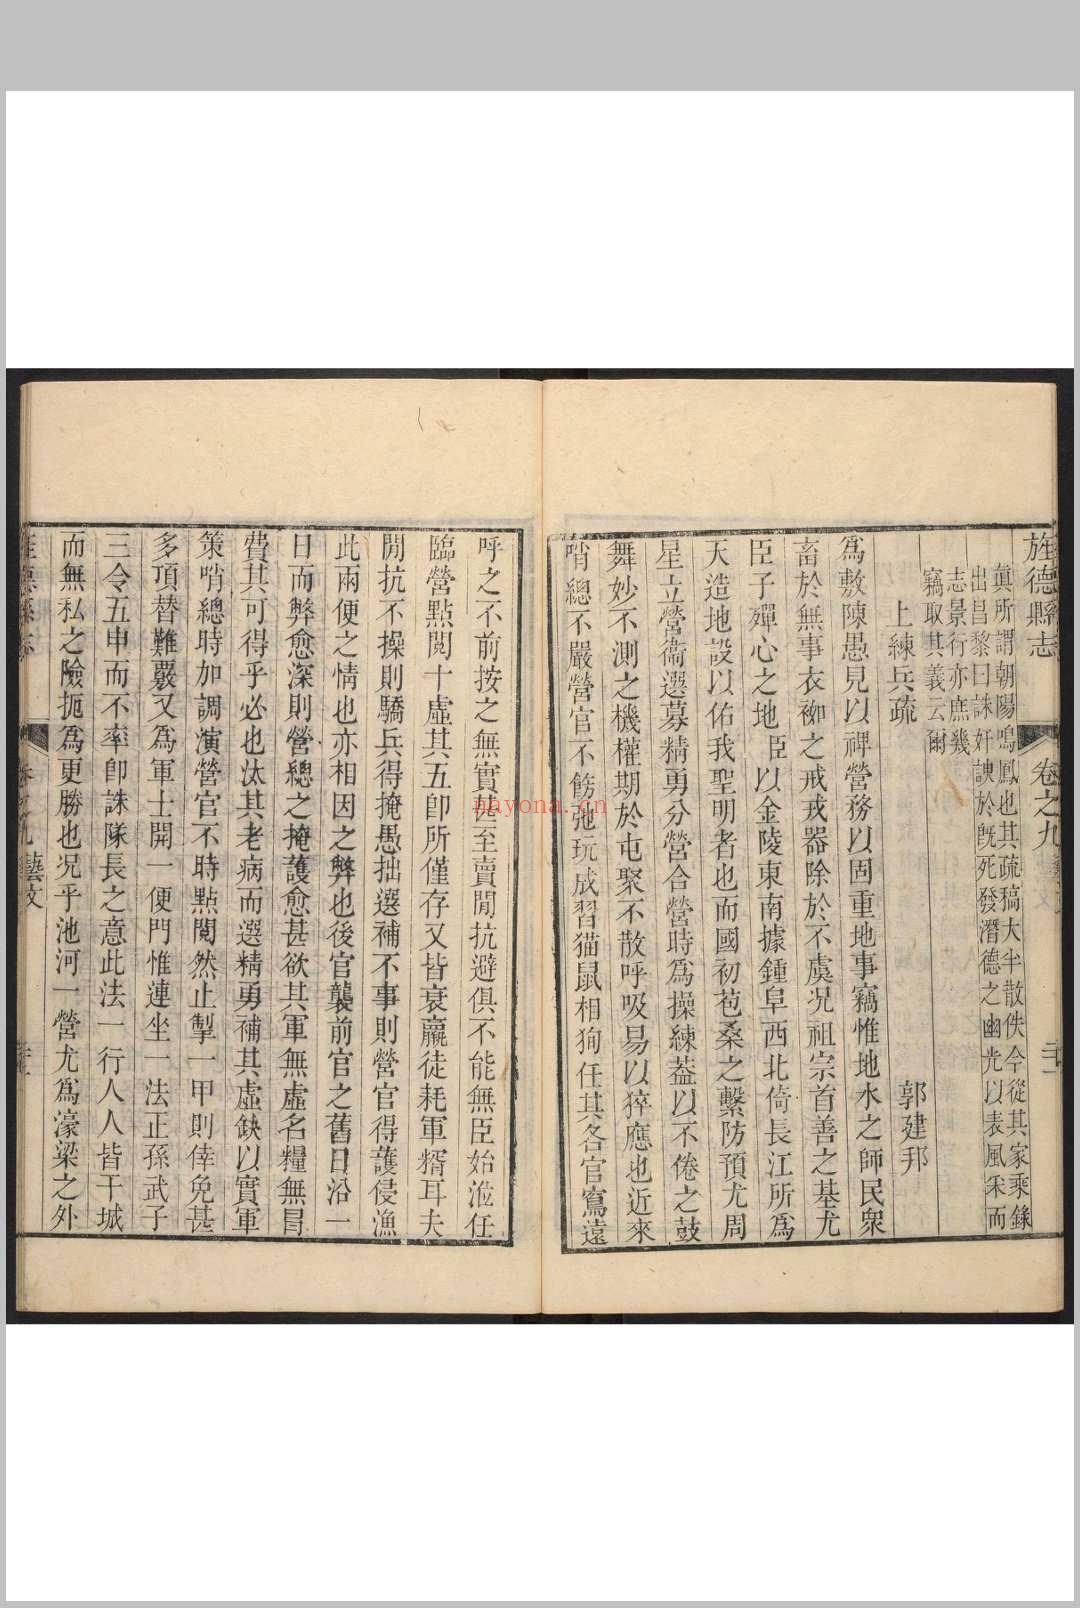 旌德縣志
卷之九
眞所謂朝陽鳴鳳也其疏稿大半散佚今從其家乘錄
出昌黎曰誅奸諛於旣死發潛德之幽光以表風采而
志景行亦庶幾
竊取其義云爾
上練兵疏 郭建邦
爲敷陳愚見以裨營務以固重地事竊惟地水之師民衆
畜於無事衣袽之戒戎器除於不虞况祖宗首善之基尤
臣子殫心之地臣以金陵東南據鍾阜西北倚長江所爲
天造地設以佑我聖明者也而國初苞桑之繫防預尤周
星立營衞選募精勇分營合營時爲操練葢以不倦之鼓
舞妙不測之機權期於屯聚不散呼吸易以猝應也近來
哨總不嚴營官不飭弛玩成習猫鼠相狥任其各官寫遠
呼之不前按之無實甚至賣閒抗避俱不能無臣始涖任
臨營點閱十虛其五卽所僅存又皆衰羸徒耗軍糈耳夫
閒抗不操則驕兵得掩愚拙選補不事則營官得護侵漁
此兩便之情也亦相因之弊也後官襲前官之舊日沿一
日而弊愈深則營總之掩護愈甚欲其軍無虛名糧無冒
費其可得乎必也汰其老病而選精勇補其虛缺以實軍
策哨總時加調演營官不時點閱然止掣一甲則倖免甚
多頂替難覈又爲軍士開一便門惟連坐一法正孫武子
三令五申而不率卽誅隊長之意此法一行人人皆干城
而無私之險扼爲更勝也况乎池河一營尤爲濠梁之外
藝文